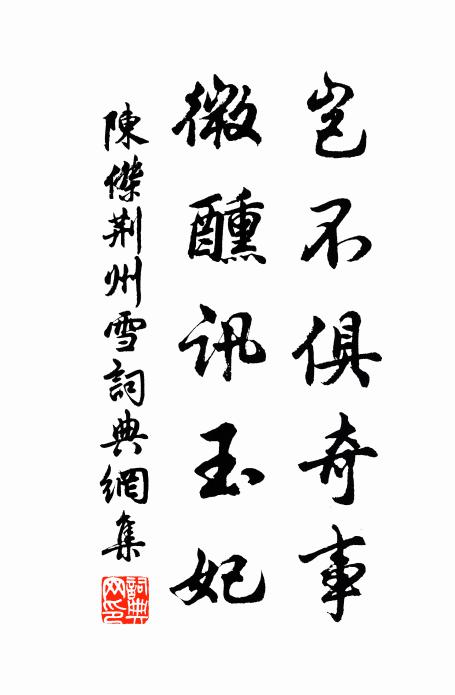 豈不俱奇事
微醺訊玉妃
陳傑荆州雪詞典網集
詞典網印